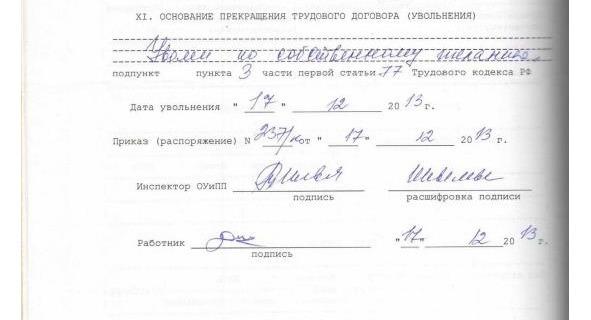 XI. ОСНОВАНИЕ ПРЕКРАЩЕНИЯ ТРУДОВОГО ДОГОВОРА (УВОЛЬНЕНИЯ)
Уволен по собственному желанию.
подпункт пункта 3 части первой статьи 77 Трудового кодекса РФ
Дата увольнения " 17 " 12 2013 г.
Приказ (распоряжение) N 237/к от " 17 " 12 2013 г.
Инспектор ОУиПП
подпись расшифровка подписи
Работник "17" 12 2013 г.
подпись